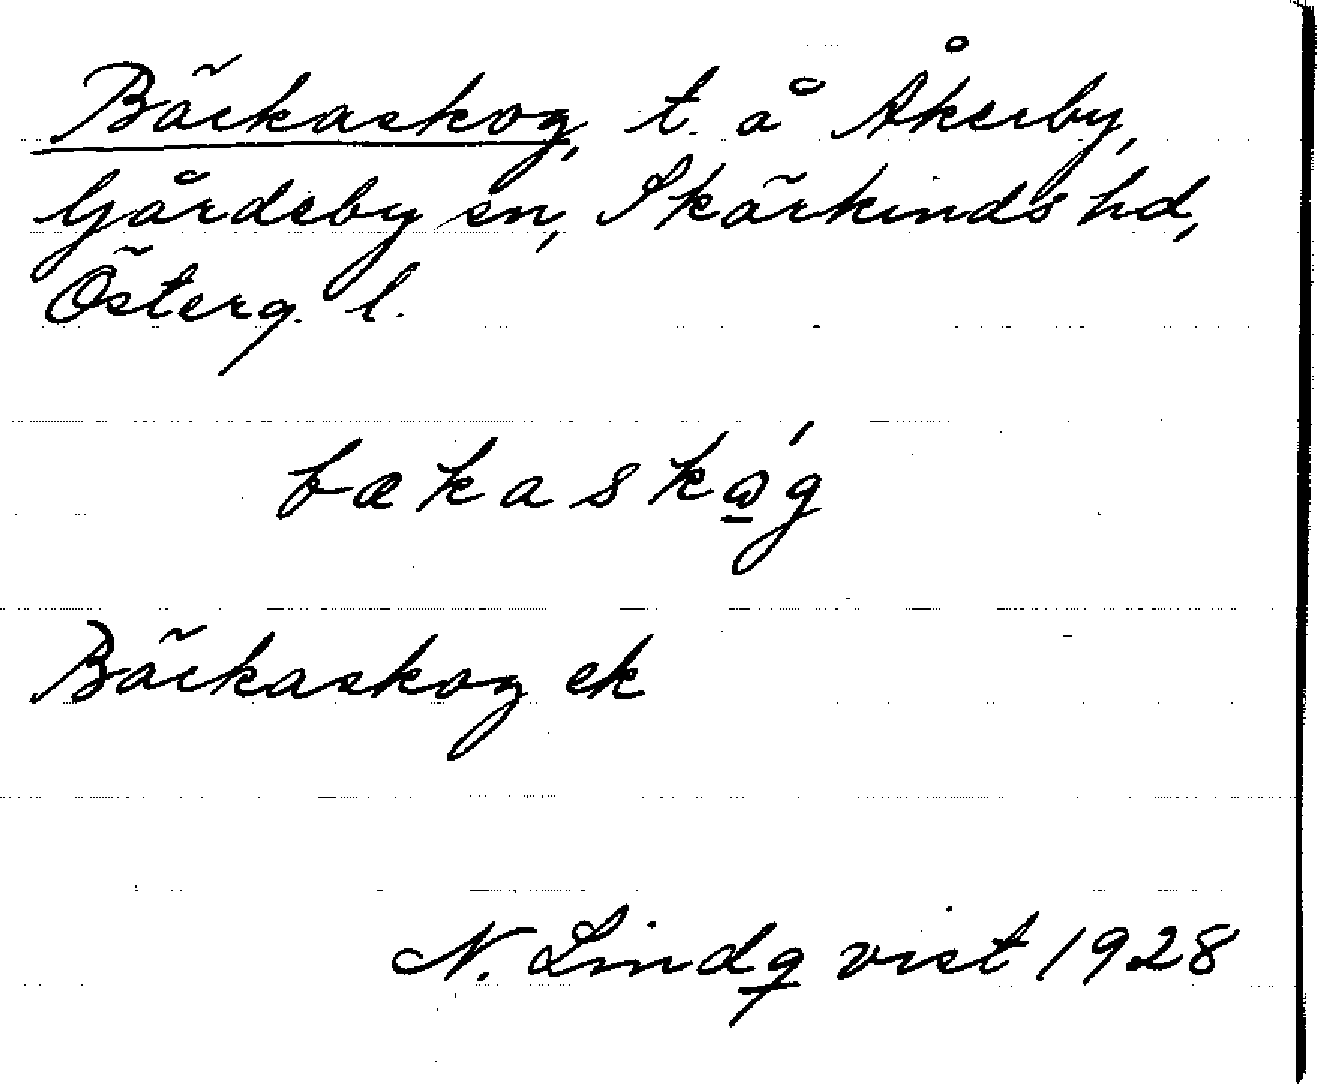 Bäckaskog, t. å Åkerby,
Gårdeby sn, Skärkinds hd,
Österg. l.
bækaskώ̱g
Bäckaskog ek
N. Lindqvist 1928